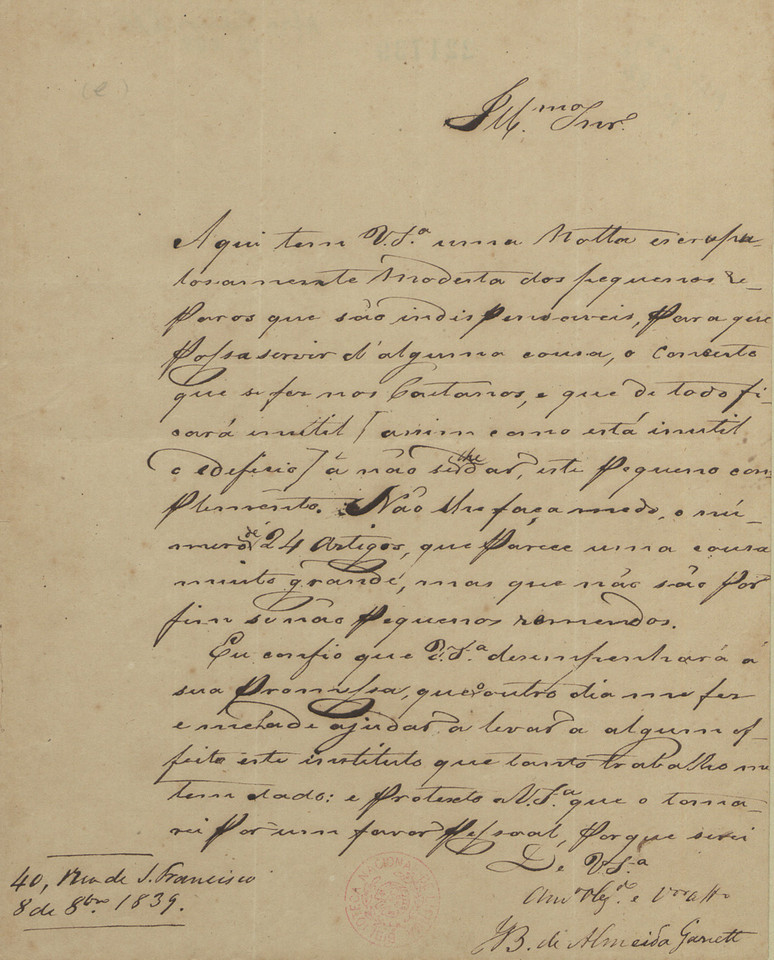 Ill.mo Snr.
Aqui tem V.S.a uma Notta escrupu-
losamente modesta dos pequenos re-
paros que são indispensaveis, para que
possa servir d'alguma cousa, o conserto
que se fez nos Caetanos, e que de todo fi-
cará inutil (assim como está inutil
o edificio) a não se lhe dar, este pequeno com-
plemento. Não lhe faça medo, o nú-
mero de 24 Artigos, que parece uma cousa
muito grande, mas que não são por
fim senão pequenos remendos.
Eu confio que V.S.a desempenhará á
sua promessa, que o outro dia me fez
e me hade ajudar, a levar a algum ef-
feito este instituto que tanto trabalho me
tem dado: e protesto a V.S.a que o toma-
rei por um favor pessoal, porque serei
De V.S.a
Am.o Obg.o e V.or att.o
JB. de Almeida Garrett
40, Rua de S. Francisco
8 de 8bro 1839.